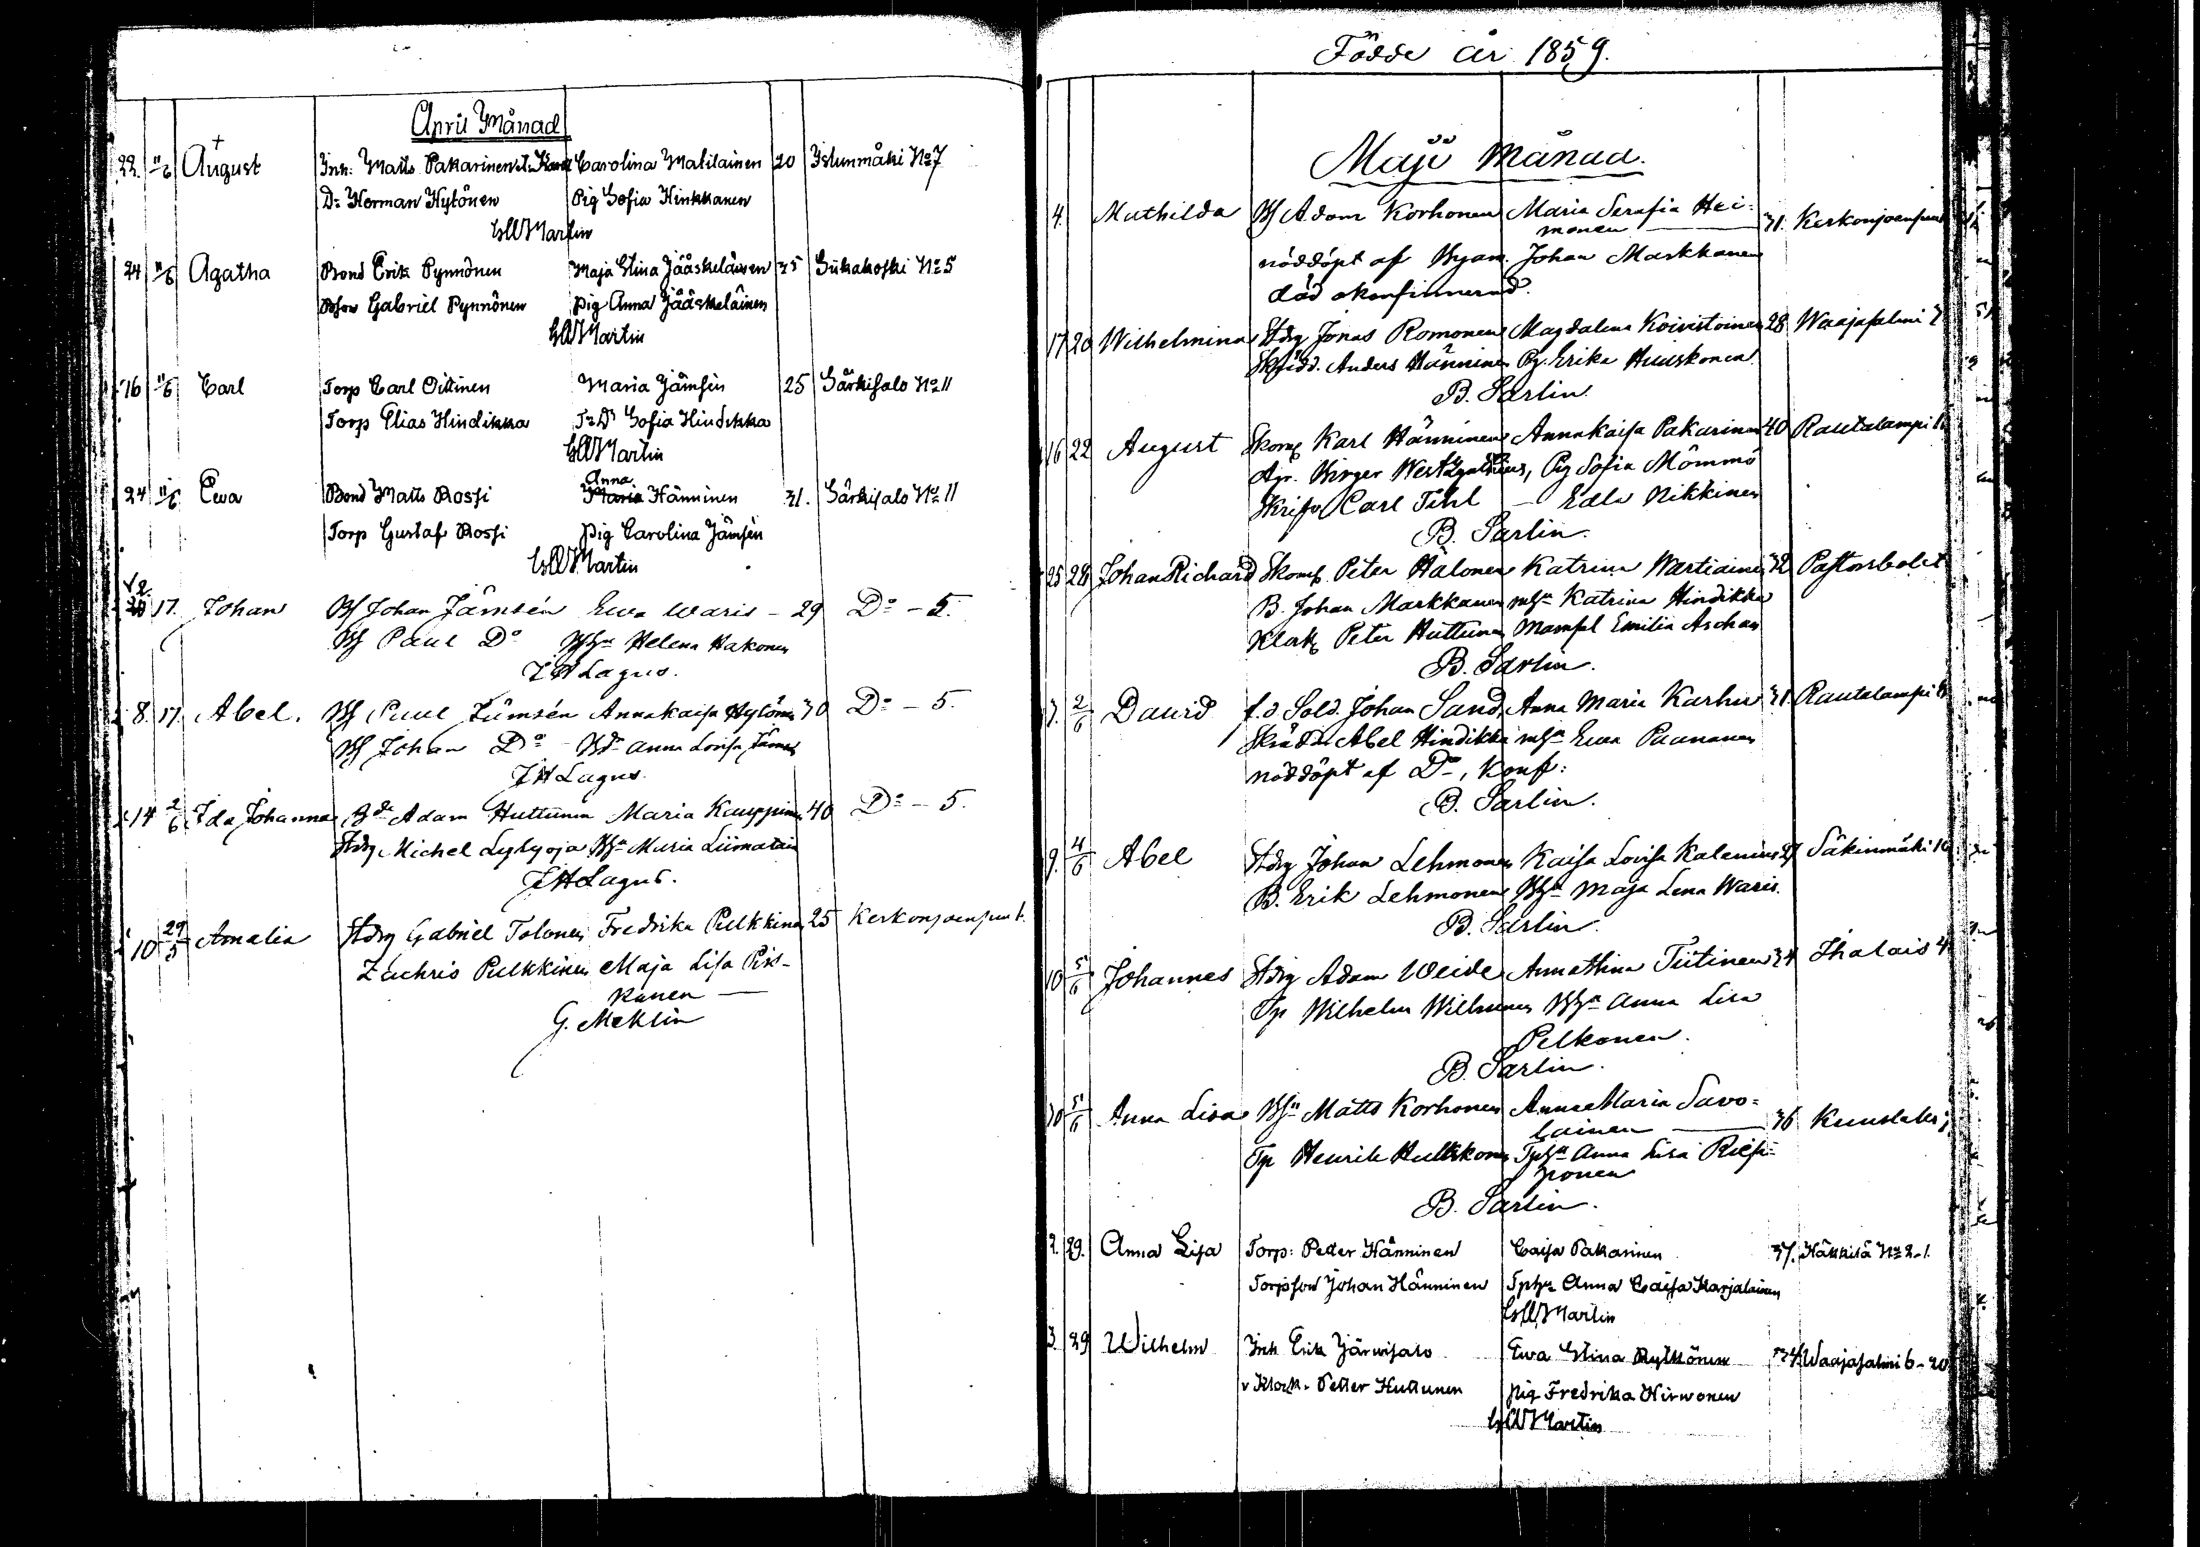 April Månad
22. 11/6 August Inh. Matts Pakarinen Carolina Matilainen 20 Istunmäki No 7
Dr Herman Hytönen Pig Sofia Hinkkanen
Martin
24 11/6 Agatha Bond Erik Pynnönen Maja Stina Jääskeläinen 35 Sukakoski No 5
Bson Gabriel Pynnönen Pig Anna Jääskeläinen
Martin
16 11/6 Carl Torp Carl Oittinen Maria Jämsén 25 Särkisalo No 11
Torp Elias Hindikka Sofia Hindikka
Martin
Anna
24 11/6 Ewa Bond Matts Rossi Maria Hänninen 31. Särkisalo No 11
Torp Gustaf Rossi Pig Carolina Jämsén
Martin
17. Johan Johan Jämsén Ewa Waris - 29 Do - 5.
Paul Do Helena Hakonen
Lagus.
8. 17. Abel. Paul Jämsén Annakaisa Hytönen 30 Do - 5.
Johan Do Anna Lovisa
Lagus.
14 2/6 Ida Johanna Adam Huttunen Maria Kauppinen 40 Do - 5.
Michel Lylyoja Maria Liimatain
Lagus.
10 29/5 Amalia Gabriel Tolonen Fredrika Pulkkinen 25 Kerkonjoensuu 1.
Zachris Pulkkinen Maja Lisa Pis-
kanen
G. Meklin
Födde år 1859.
Maji Månad.
4. Mathilda Adam Korhonen Maria Serafia Hei-
monen 31. Kerkonjoensuu
nöddöpt af Johan Markkanen
död okonfirmerad.
17 20 Wilhelmina Jonas Romonen Magdalena Koivistoinen 28 Waajasalmi 7
Skrädd. Anders Hänninen Pg. Erika Huuskonen
B. Sarlin.
16 22 August Skom Karl Hänninen Annakaisa Pakarinen 40 Rautalampi
Agr. Birger Pig Sofia Mömmö
Carl Edla Nikkinen
B. Sarlin.
25 28 Johan Richard Skom Peter Halonen Katrina Wartiainen 32 Pastorsbolet
B. Johan Markkanen Katrina Hindikka
Klok Peter Huttunen Mamsl Emilia Aschan
B. Sarlin.
7. 2/6 David f.d Sold. Johan Sand, Anna Maria Karhu 31. Rautalampi
Skrädd Abel Hindikka Ewa Paananen
nöddöpt af Do, Konf:
B. Sarlin.
9. 4/6 Abel Johan Lehmonen Kaisa Lovisa Kalenius 27 Säkinmäki
B. Erik Lehmonen Maja Lena Waris.
B. Sarlin.
10 5/6 Johannes Adam Weide Annastina Tiitinen 34 Ihalais 4
Tp Wilhelm Willmunen Anna Lisa
Pelkonen.
B. Sarlin.
10 5/6 Anna Lisa Matts Korhonen Anna Maria Savo-
lainen 36
Tp Henrik Anna Lisa
ponen
B. Sarlin.
2. 29. Anna Lisa Torp: Petter Hänninen Caisa Pakarinen 37. Häkkilä No 2-1.
Torpson Johan Hänninen Anna Caisa Karjalainen
Martin
3. 29 Wilhelm Inh Erik Järvisalo Ewa Stina Rytkönen 34 Waajasalmi 6-20
v Klock. Petter Huttunen Pig Fredrika Hirwonen
Martin